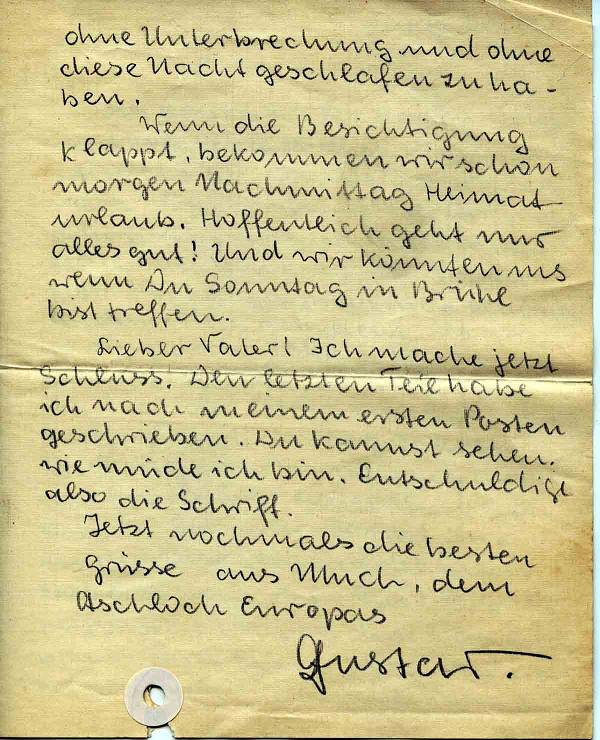 ohne Unterbrechung und ohne
diese Nacht geschlafen zu ha-
ben.
Wenn die Besichtigung
klappt, bekommen wir schon
morgen Nachmittag Heimat
urlaub. Hoffentlich geht nur
alles gut! Und wir könnten uns
wenn Du Sonntag in Brühl
bist treffen.
Lieber Vater! Ich mache jetzt
Schluss. Den letzten Teil habe
ich nach meinem ersten Posten
geschrieben. Du kannst sehen,
wie müde ich bin. Entschuldige
also die Schrift.
Jetzt nochmals die besten
Grüsse aus Much, dem
Aschloch Europas
Gustav.